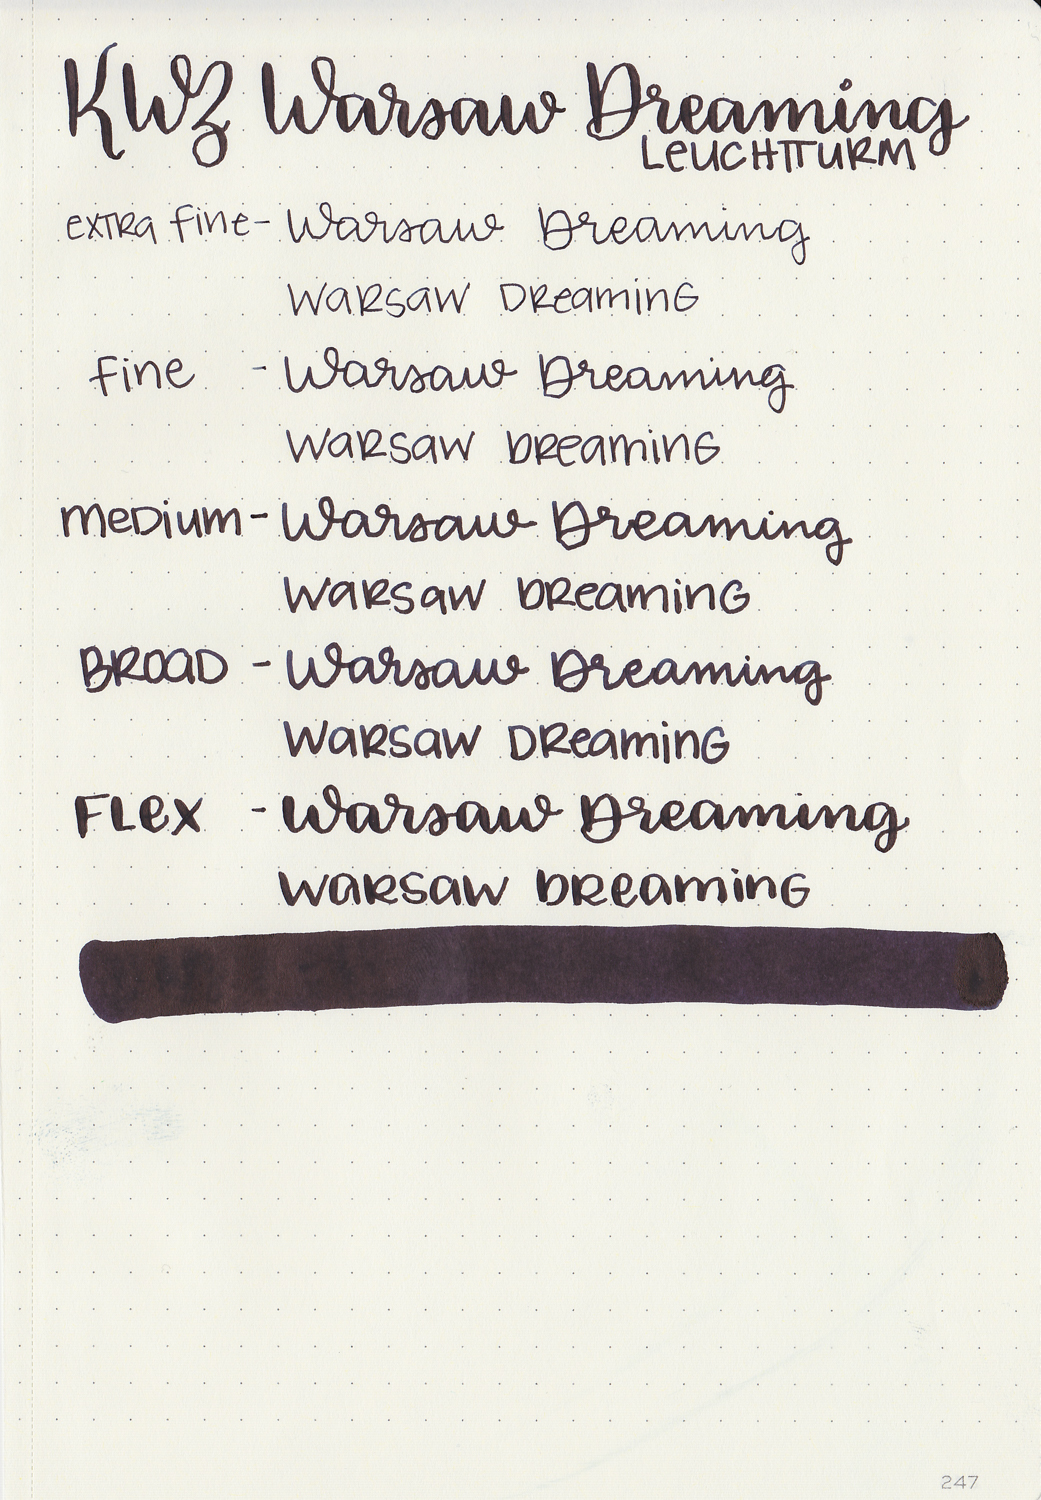 KWZ Warsaw Dreaming
LEUCHTTURM
extra fine - Warsaw Dreaming
Warsaw Dreaming
fine - Warsaw Dreaming
Warsaw Dreaming
Medium - Warsaw Dreaming
Warsaw Dreaming
BROAD - Warsaw Dreaming
Warsaw Dreaming
FLEX - Warsaw Dreaming
Warsaw Dreaming
247